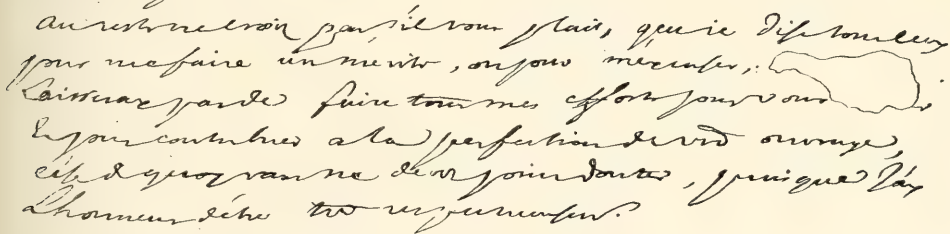 Au reste ne croiez pas s'il vous plait, que je dise tout cecy
pour me faire un mérite, ou pour m'excuser,
laisseray pas de faire tous mes efforts pour vous
Et pour contribuer a la perfection de vrê ouvrage,
c'est de quoy vous ne devez point douter, puisque J'ay
L'honneur d'être tres